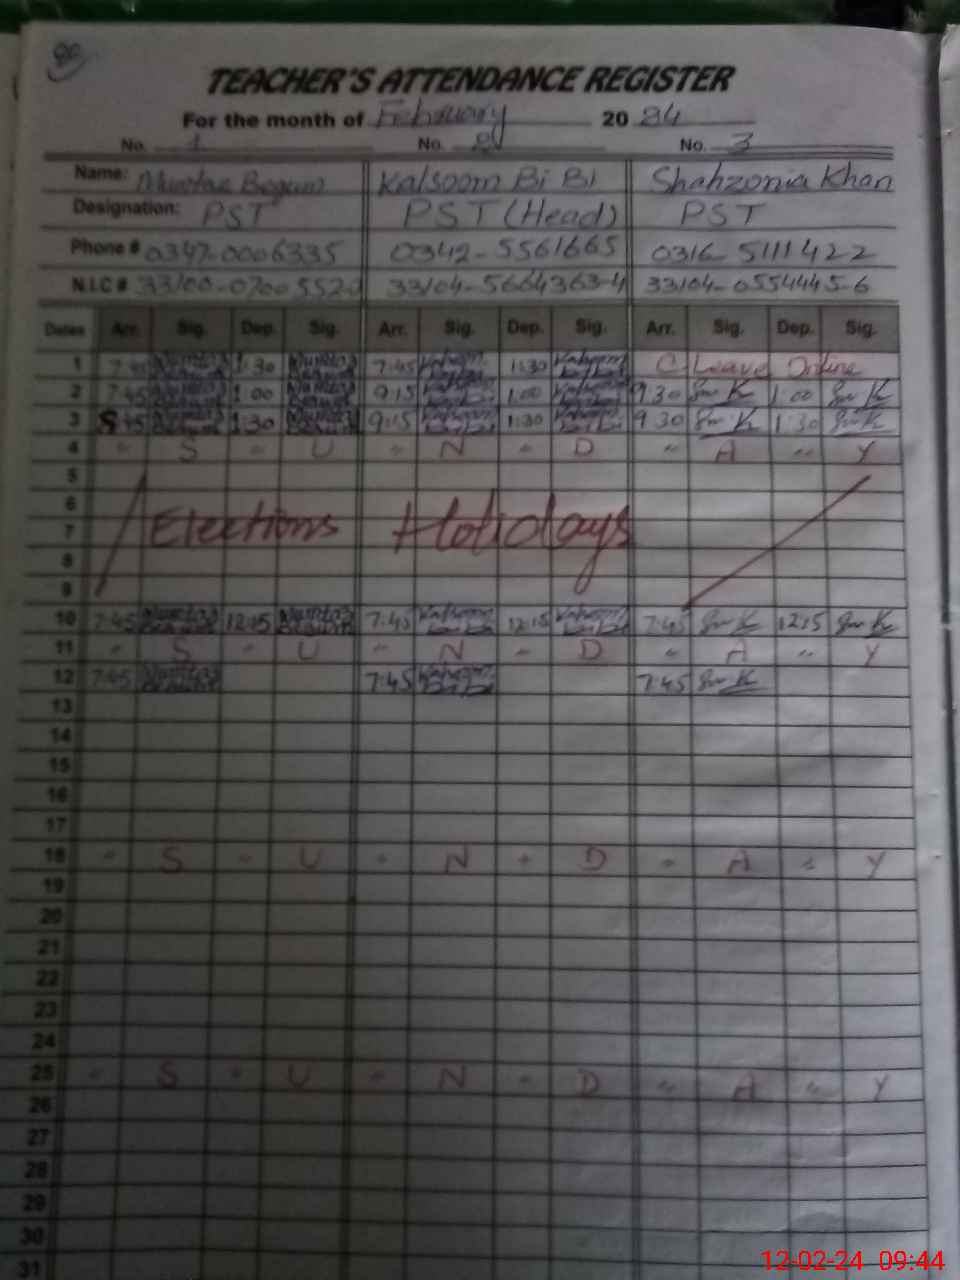 TEACHER'S ATTENDANCE REGISTER
For the month of February 2024
No. 1 No. 2 No. 3
Name: Mumtaz Begum Kalsoom Bi Bi Shahzonia Khan
Designation: PST PST (Head) PST
Phone # 0347-0006335 0342-5561665 0316-5111422
N.I.C # 33100-0700552- 33104-5664363-4 33104-0554445-6
Dates Arr. Sig. Dep. Sig. Arr. Sig. Dep. Sig. Arr. Sig. Dep. Sig.
1 7:45 Mumtaz 1:30 Mumtaz 7:45 Kalsoom 1:30 Kalsoom C. Leave Online
2 7:45 1:00 9:15 Kalsoom 1:00 Kalsoom 9 30 1:00
3 8:45 1:30 9:15 1:30 9 30 1:30
4 " S " U " N " D " A " Y
5
6
Elections Holidays
7
8
9
10 7:45 Mumtaz 12:15 Mumtaz 7:45 Kalsoom 12:15 Kalsoom 7:45 12:15
11 " S " U " N " D " A " Y
12 7:45 7:45 Kalsoom 7:45
13
14
15
16
17
18 " S " U " N " D " A " Y
19
20
21
22
23
24
25 " S " U " N " D " A " Y
26
27
28
29
30
31
12-02-24 09:44